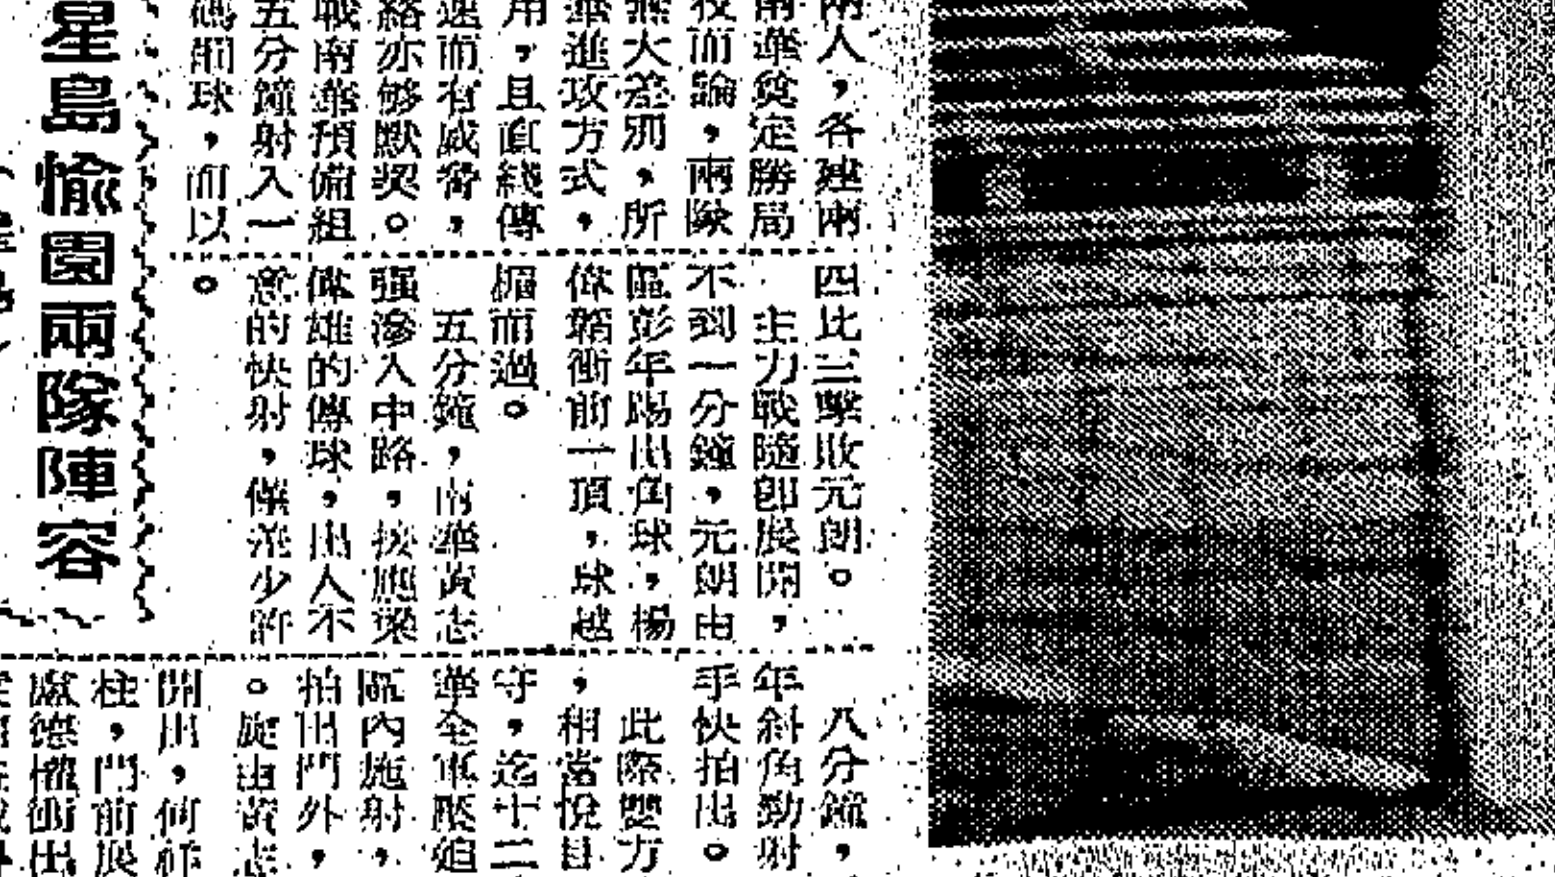 兩人，各建兩
南華奠定勝局
技而論，兩隊
無大差別，所
華進攻方式，
用，且直綫傳
速而有威脅，
絡亦够默契。
戰南華預備組
五分鐘射入一
碼個球，而以
四比三擊敗元朗。
主力戰隨卽展開，
不到一分鐘，元朗由
區彭年踢出角球，楊
偉韜衝前一頂，球越
楣而過。
五分鐘，南華黃志
强滲入中路，接應梁
偉雄的傳球，出人不
意的快射，僅差少許
。
八分鐘，
年斜角勁射
手快拍出。
此際雙方
，相當悅目
守，迄十二
華全軍壓迫
區內施射，
拍出門外，
。旋由黃志
開出，何祚
柱，門前展
處德權衝出
星島愉園兩隊陣容